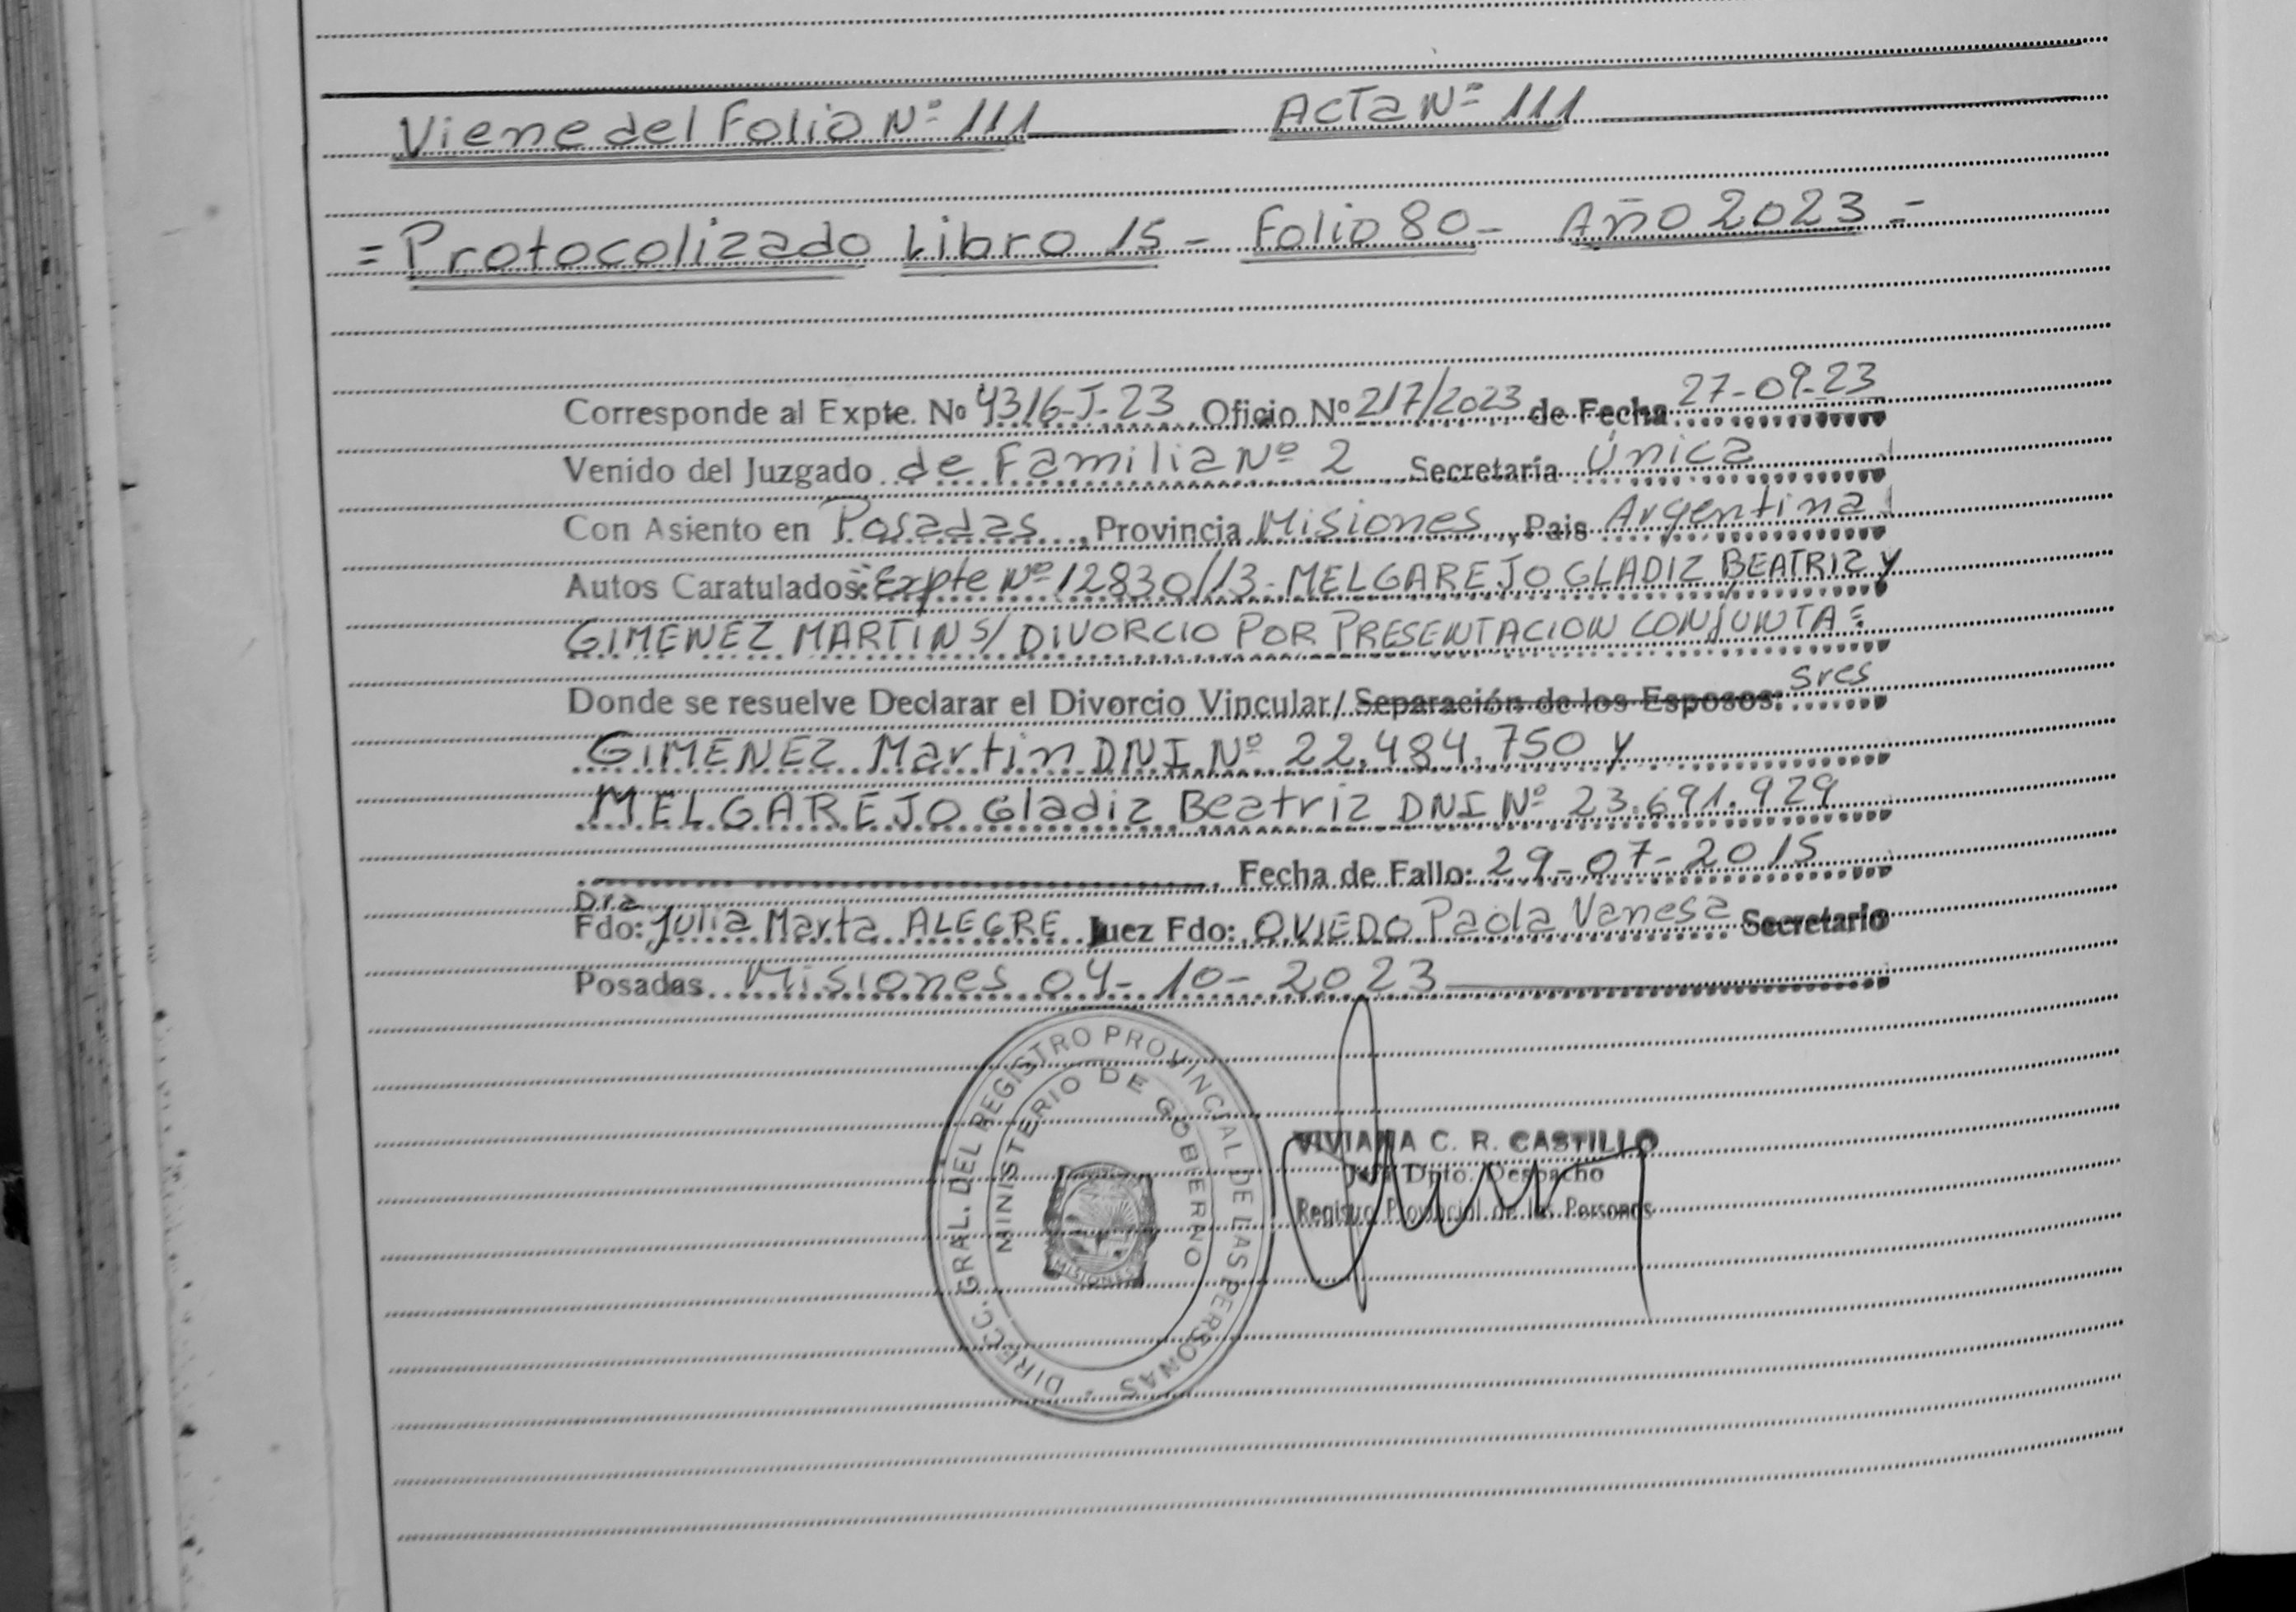 Viene del Folio Nº 111 Acta Nº 111
= Protocolizado Libro 15 - Folio 80 - Año 2023 =
Corresponde al Expte. Nº 4316-J-23 Oficio Nº 217/2023 de Fecha 27-09-23
Venido del Juzgado de Familia Nº 2 Secretaría Única
Con Asiento en Posadas, Provincia Misiones, Pais Argentina
Autos Caratulados: Expte Nº 12830/13- MELGAREJO GLADIZ BEATRIZ Y
GIMENEZ MARTIN S/ DIVORCIO POR PRESENTACION CONJUNTA =
Donde se resuelve Declarar el Divorcio Vincular/ Separación de los Esposos: Sres
GIMENEZ Martin DNI Nº 22.484.750 y
MELGAREJO Gladiz Beatriz DNI Nº 23.691.929
Fecha de Fallo: 29-07-2015
Dra
Fdo: Julia Marta ALEGRE Juez Fdo: OVIEDO Paola Vanesa Secretario
Posadas Misiones 04-10-2023
DIRECC. GRAL. DEL REGISTRO PROVINCIAL DE LAS PERSONAS
MINISTERIO DE GOBIERNO
MISIONES
VIVIANA C. R. CASTILLO
Jefa Dpto. Despacho
Registro Provincial de las Personas